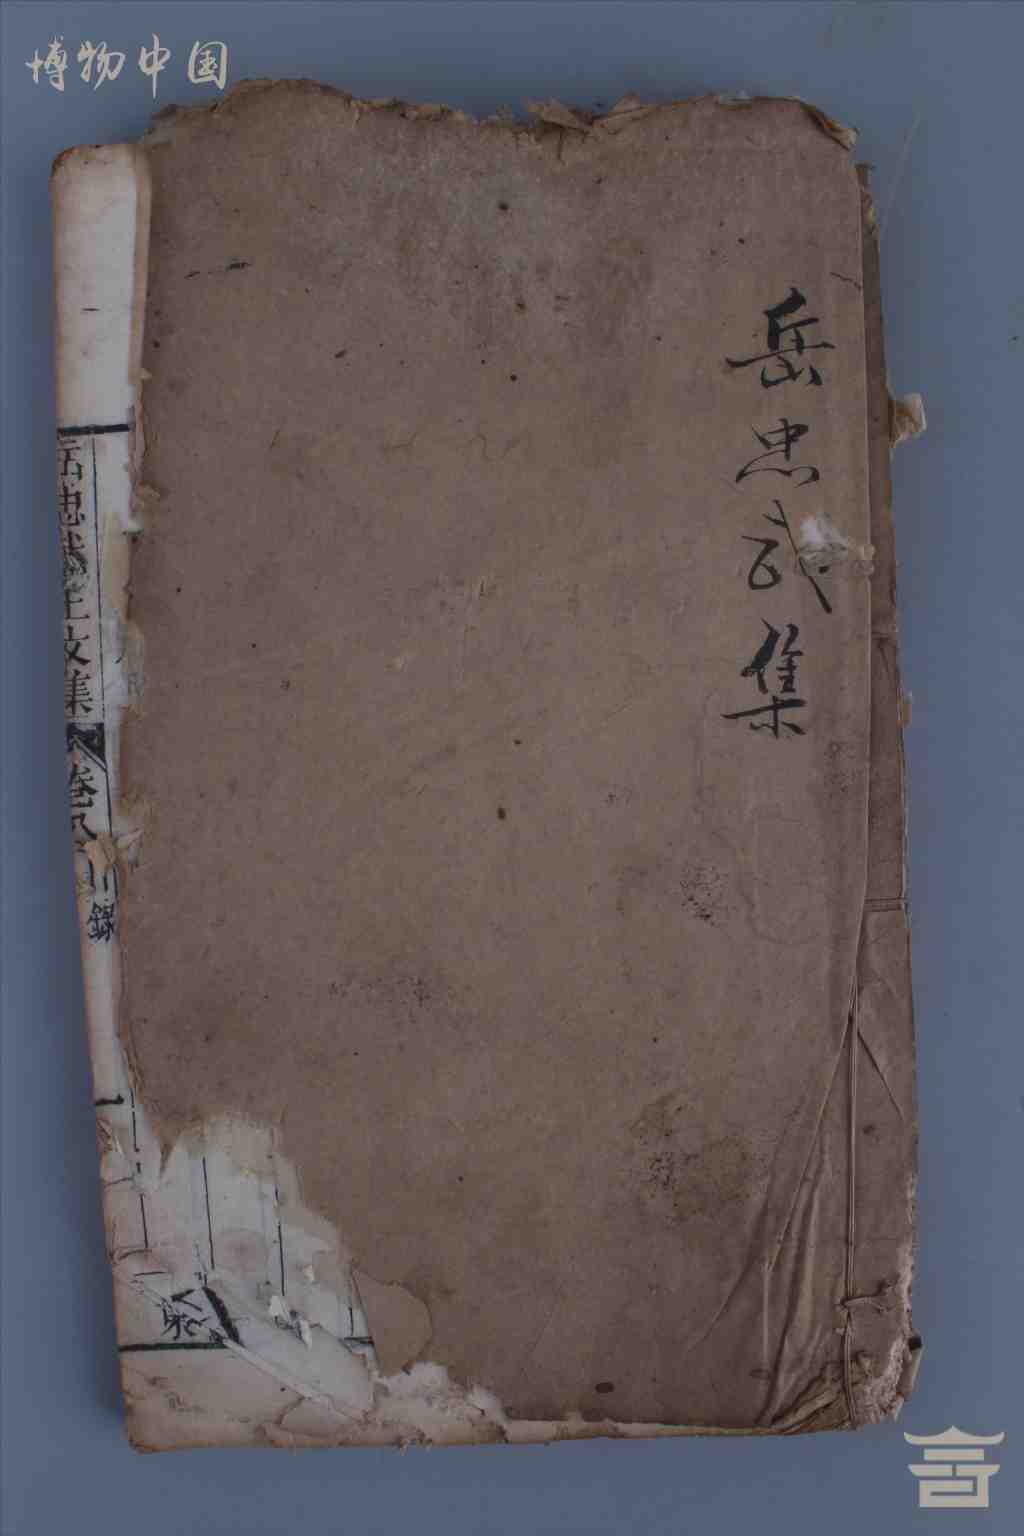 博物中国
岳忠武集
岳忠武王文集
卷八
錄
一